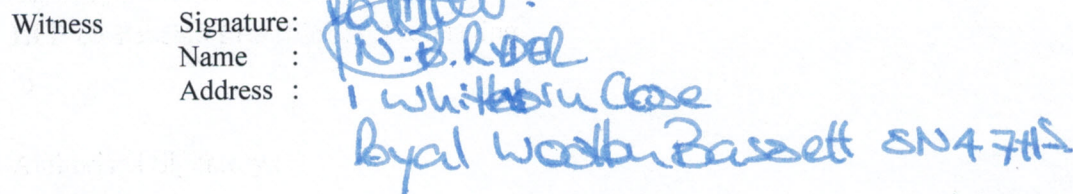 Witness Signature:
Name : N.B. RYDER
Address : 1 Whitethorn Close
Royal Wootton Bassett SN4 7HS